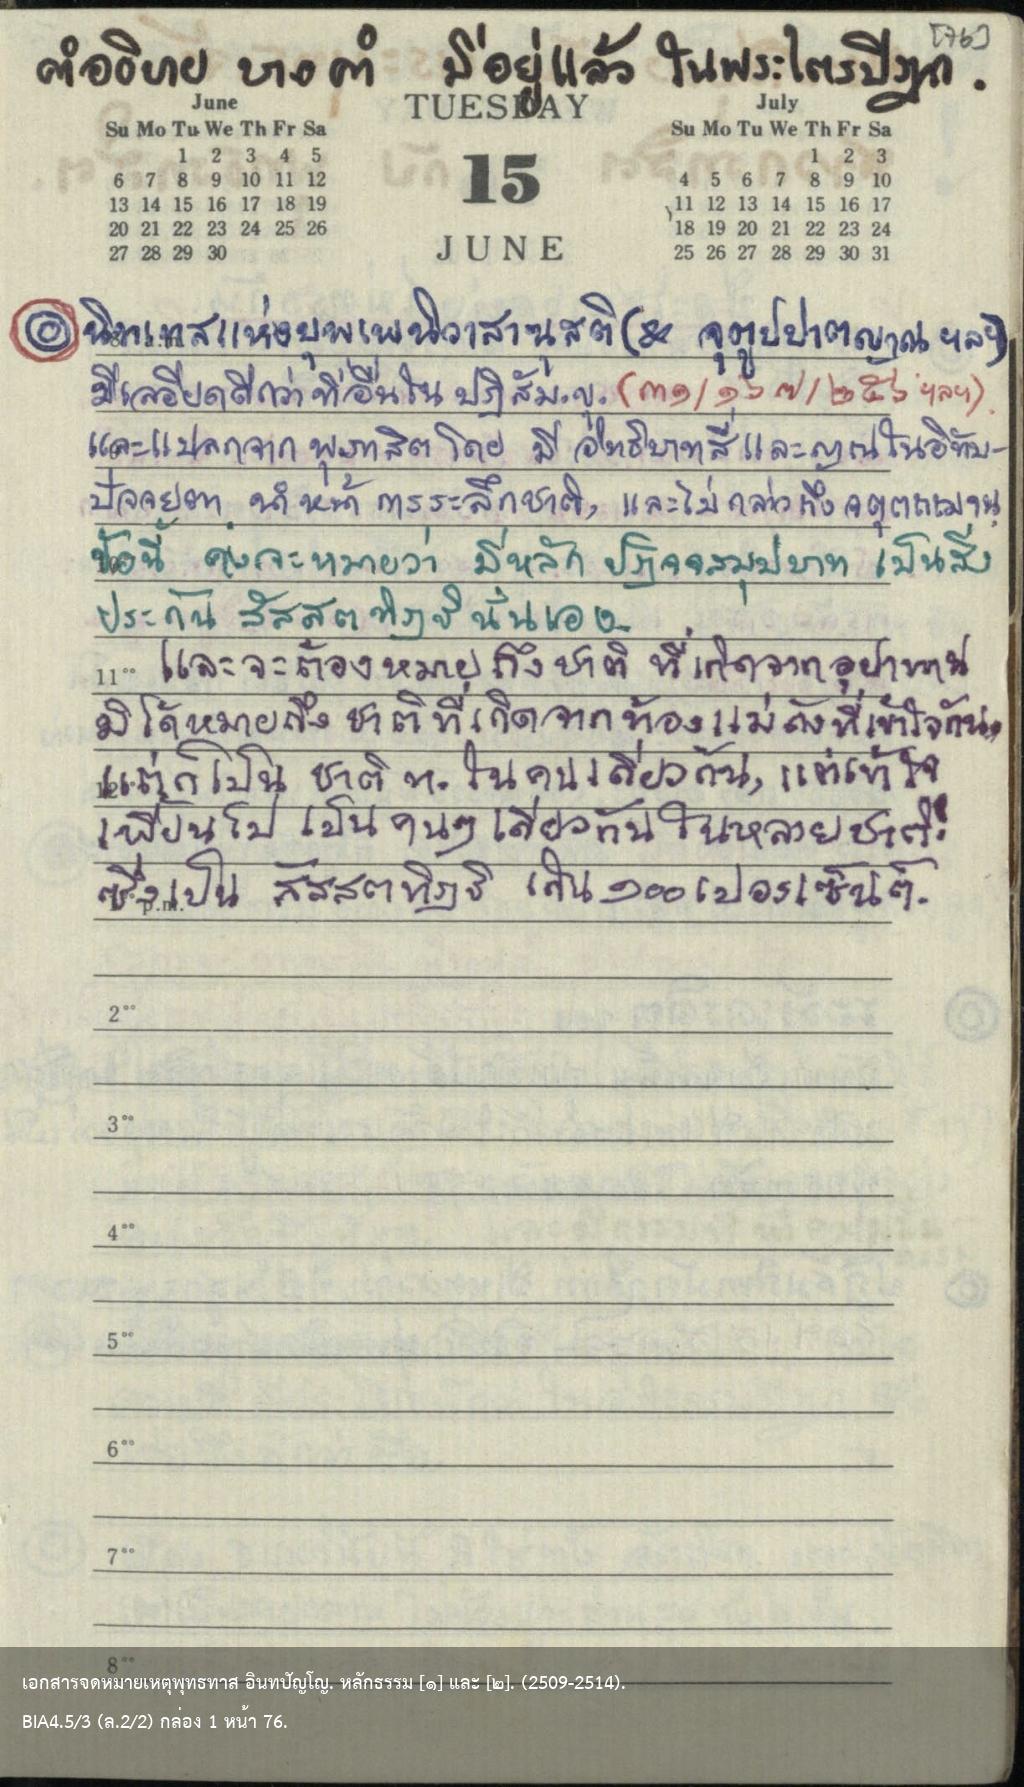 [76]
คำอธิบาย บางคำ มีอยู่แล้ว ในพระไตรปิฎก.
June TUESDAY July
Su Mo Tu We Th Fr Sa
1 2 3 4 5
6 7 8 9 10 11 12
13 14 15 16 17 18 19
20 21 22 23 24 25 26
27 28 29 30
15
JUNE
Su Mo Tu We Th Fr Sa
1 2 3
4 5 6 7 8 9 10
11 12 13 14 15 16 17
18 19 20 21 22 23 24
25 26 27 28 29 30 31
นิทเทสแห่งบุพเพนิวาสานุสติ (& จุตูปปาตญาณ ฯลฯ)
มีละเอียดดีกว่าที่อื่นใน ปฏิสัม.ขุ. (๓๑/๑๖๗/๒๕๖ ฯลฯ).
และแปลกจากพุทธภาสิต โดย มี อิทธิบาทสี่ และญาณในอิทัป-
ปัจจยตา นำหน้า การระลึกชาติ, และไม่กล่าวถึงจตุตถฌาน
ข้อนี้ คงจะหมายว่า มีหลัก ปฏิจจสมุปบาท เป็นสิ่ง
ประกัน สัสสตทิฏฐินั่นเอง
11⁰⁰ และจะต้องหมายถึงชาติ ที่เกิดจากอุปาทาน
มิได้หมายถึง ชาติที่เกิดจากท้องแม่ดังที่เข้าใจกัน,
แต่ก็เป็น ชาติ ๆ. ในคนเดียวกัน, แต่เข้าใจ
เพี้ยนไป เป็นคนๆเดียวกันในหลายชาติ!
ซึ่งเป็น สัสสตทิฏฐิ เกิน ๑๐๐ เปอร์เซ็นต์.
p.m.
2⁰⁰
3⁰⁰
4⁰⁰
5⁰⁰
6⁰⁰
7⁰⁰
8⁰⁰
เอกสารจดหมายเหตุพุทธทาส อินทปัญโญ. หลักธรรม [๑] และ [๒]. (2509-2514).
BIA4.5/3 (ล.2/2) กล่อง 1 หน้า 76.